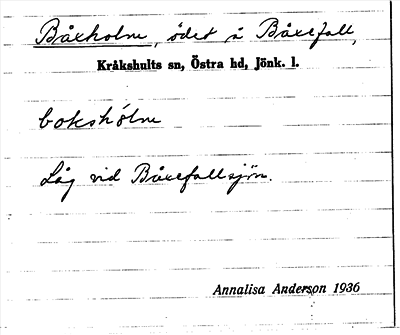 Båxholm, ödet å Båxefall,
Kråkshults sn, Östra hd, Jönk. l.
bokshólm
Låg vid Båxefallsjön.
Annalisa Anderson 1936